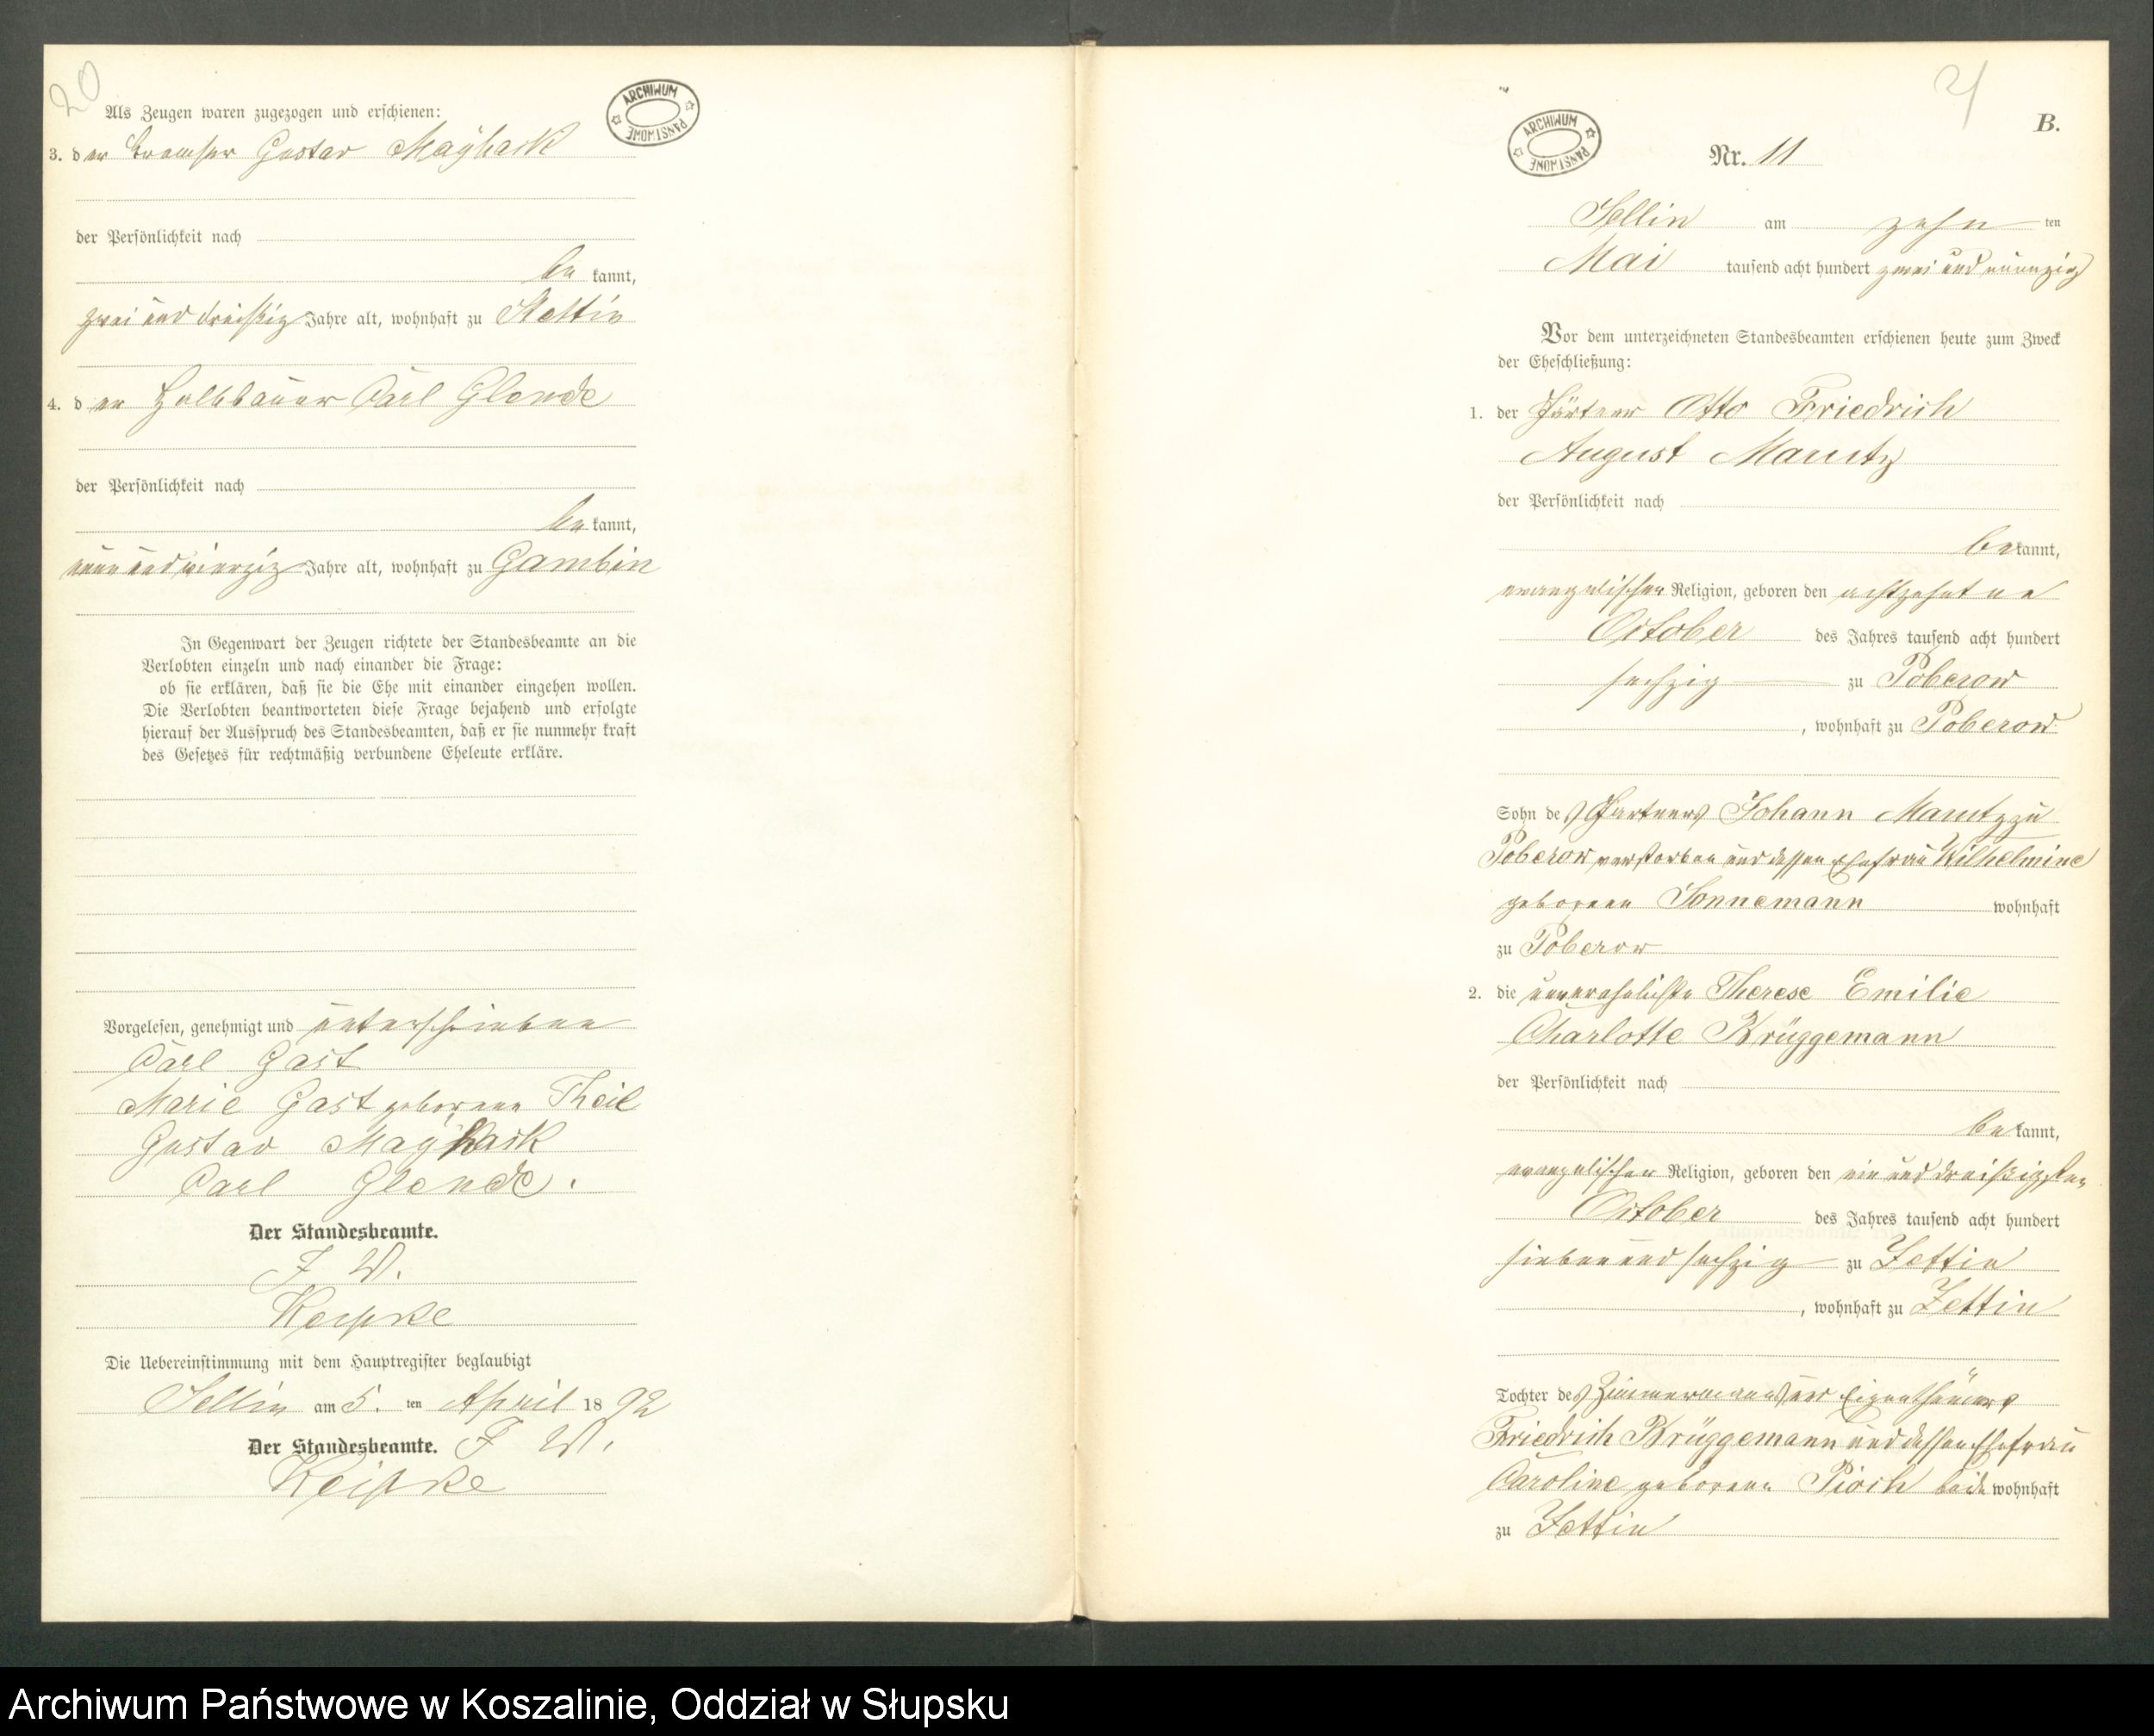 20
Als Zeugen waren zugezogen und erschienen:
3. der Bremser Gustav Mayhack
der Persönlichkeit nach
bekannt,
zwei und dreißig Jahre alt, wohnhaft zu Stettin
4. der Halbbauer Carl Glende
der Persönlichkeit nach
bekannt,
neun und vierzig Jahre alt, wohnhaft zu Gambin
In Gegenwart der Zeugen richtete der Standesbeamte an die
Verlobten einzeln und nach einander die Frage:
ob sie erklären, daß sie die Ehe mit einander eingehen wollen.
Die Verlobten beantworteten diese Frage bejahend und erfolgte
hierauf der Ausspruch des Standesbeamten, daß er sie nunmehr kraft
des Gesetzes für rechtmäßig verbundene Eheleute erkläre.
Vorgelesen, genehmigt und unterschrieben
Carl Gast
Marie Gast geborene Theil
Gustav Mayhack
Carl Glende.
Der Standesbeamte.
J. W.
Die Uebereinstimmung mit dem Hauptregister beglaubigt
Sellin am 5. ten April 1892
Der Standesbeamte. J. W.
ARCHIWUM PAŃSTWOWE
21
B.
ARCHIWUM PAŃSTWOWE
Nr. 11
Sellin am zehnten
Mai tausend acht hundert zwei und neunzig
Vor dem unterzeichneten Standesbeamten erschienen heute zum Zweck
der Eheschließung:
1. der Gärtner Otto Friedrich
August Marutz
der Persönlichkeit nach
bekannt,
evangelischer Religion, geboren den achtzehnten
October des Jahres tausend acht hundert
sechzig zu Poberow
, wohnhaft zu Poberow
Sohn des Gärtners Johann Marutz zu
Poberow verstorben und dessen Ehefrau Wilhelmine
geborenen Sonnemann wohnhaft
zu Poberow
2. die unverehelichte Therese Emilie
Charlotte Krüggemann
der Persönlichkeit nach
bekannt,
evangelischer Religion, geboren den ein und dreißigsten
October des Jahres tausend acht hundert
sieben und sechzig zu Zettin
, wohnhaft zu Zettin
Tochter des Zimmermanns und Eigenthümers
Friedrich Krüggemann und dessen Ehefrau
Caroline geborene Pioch beide wohnhaft
zu Zettin
Archiwum Państwowe w Koszalinie, Oddział w Słupsku